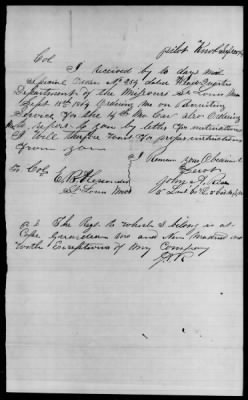 Pilot Knob
Col
I received by to days Mail
Special Order No 254 dated Head Quarters
Department of the Missouri St Louis Mo
Sept 1864 Ordering me on Recruiting
Service for the 14th Mo Cav also Ordering
me to report to you by letter for instructions
I Will therefore for instructions
from you
I Remain your Obedient
Servt
John A. Rice
To Col
St Louis Mo
The Regt to which I belong is at
Cape Girardeau Mo and New Madrid Mo
With Exceptions of my Company
J.A.R